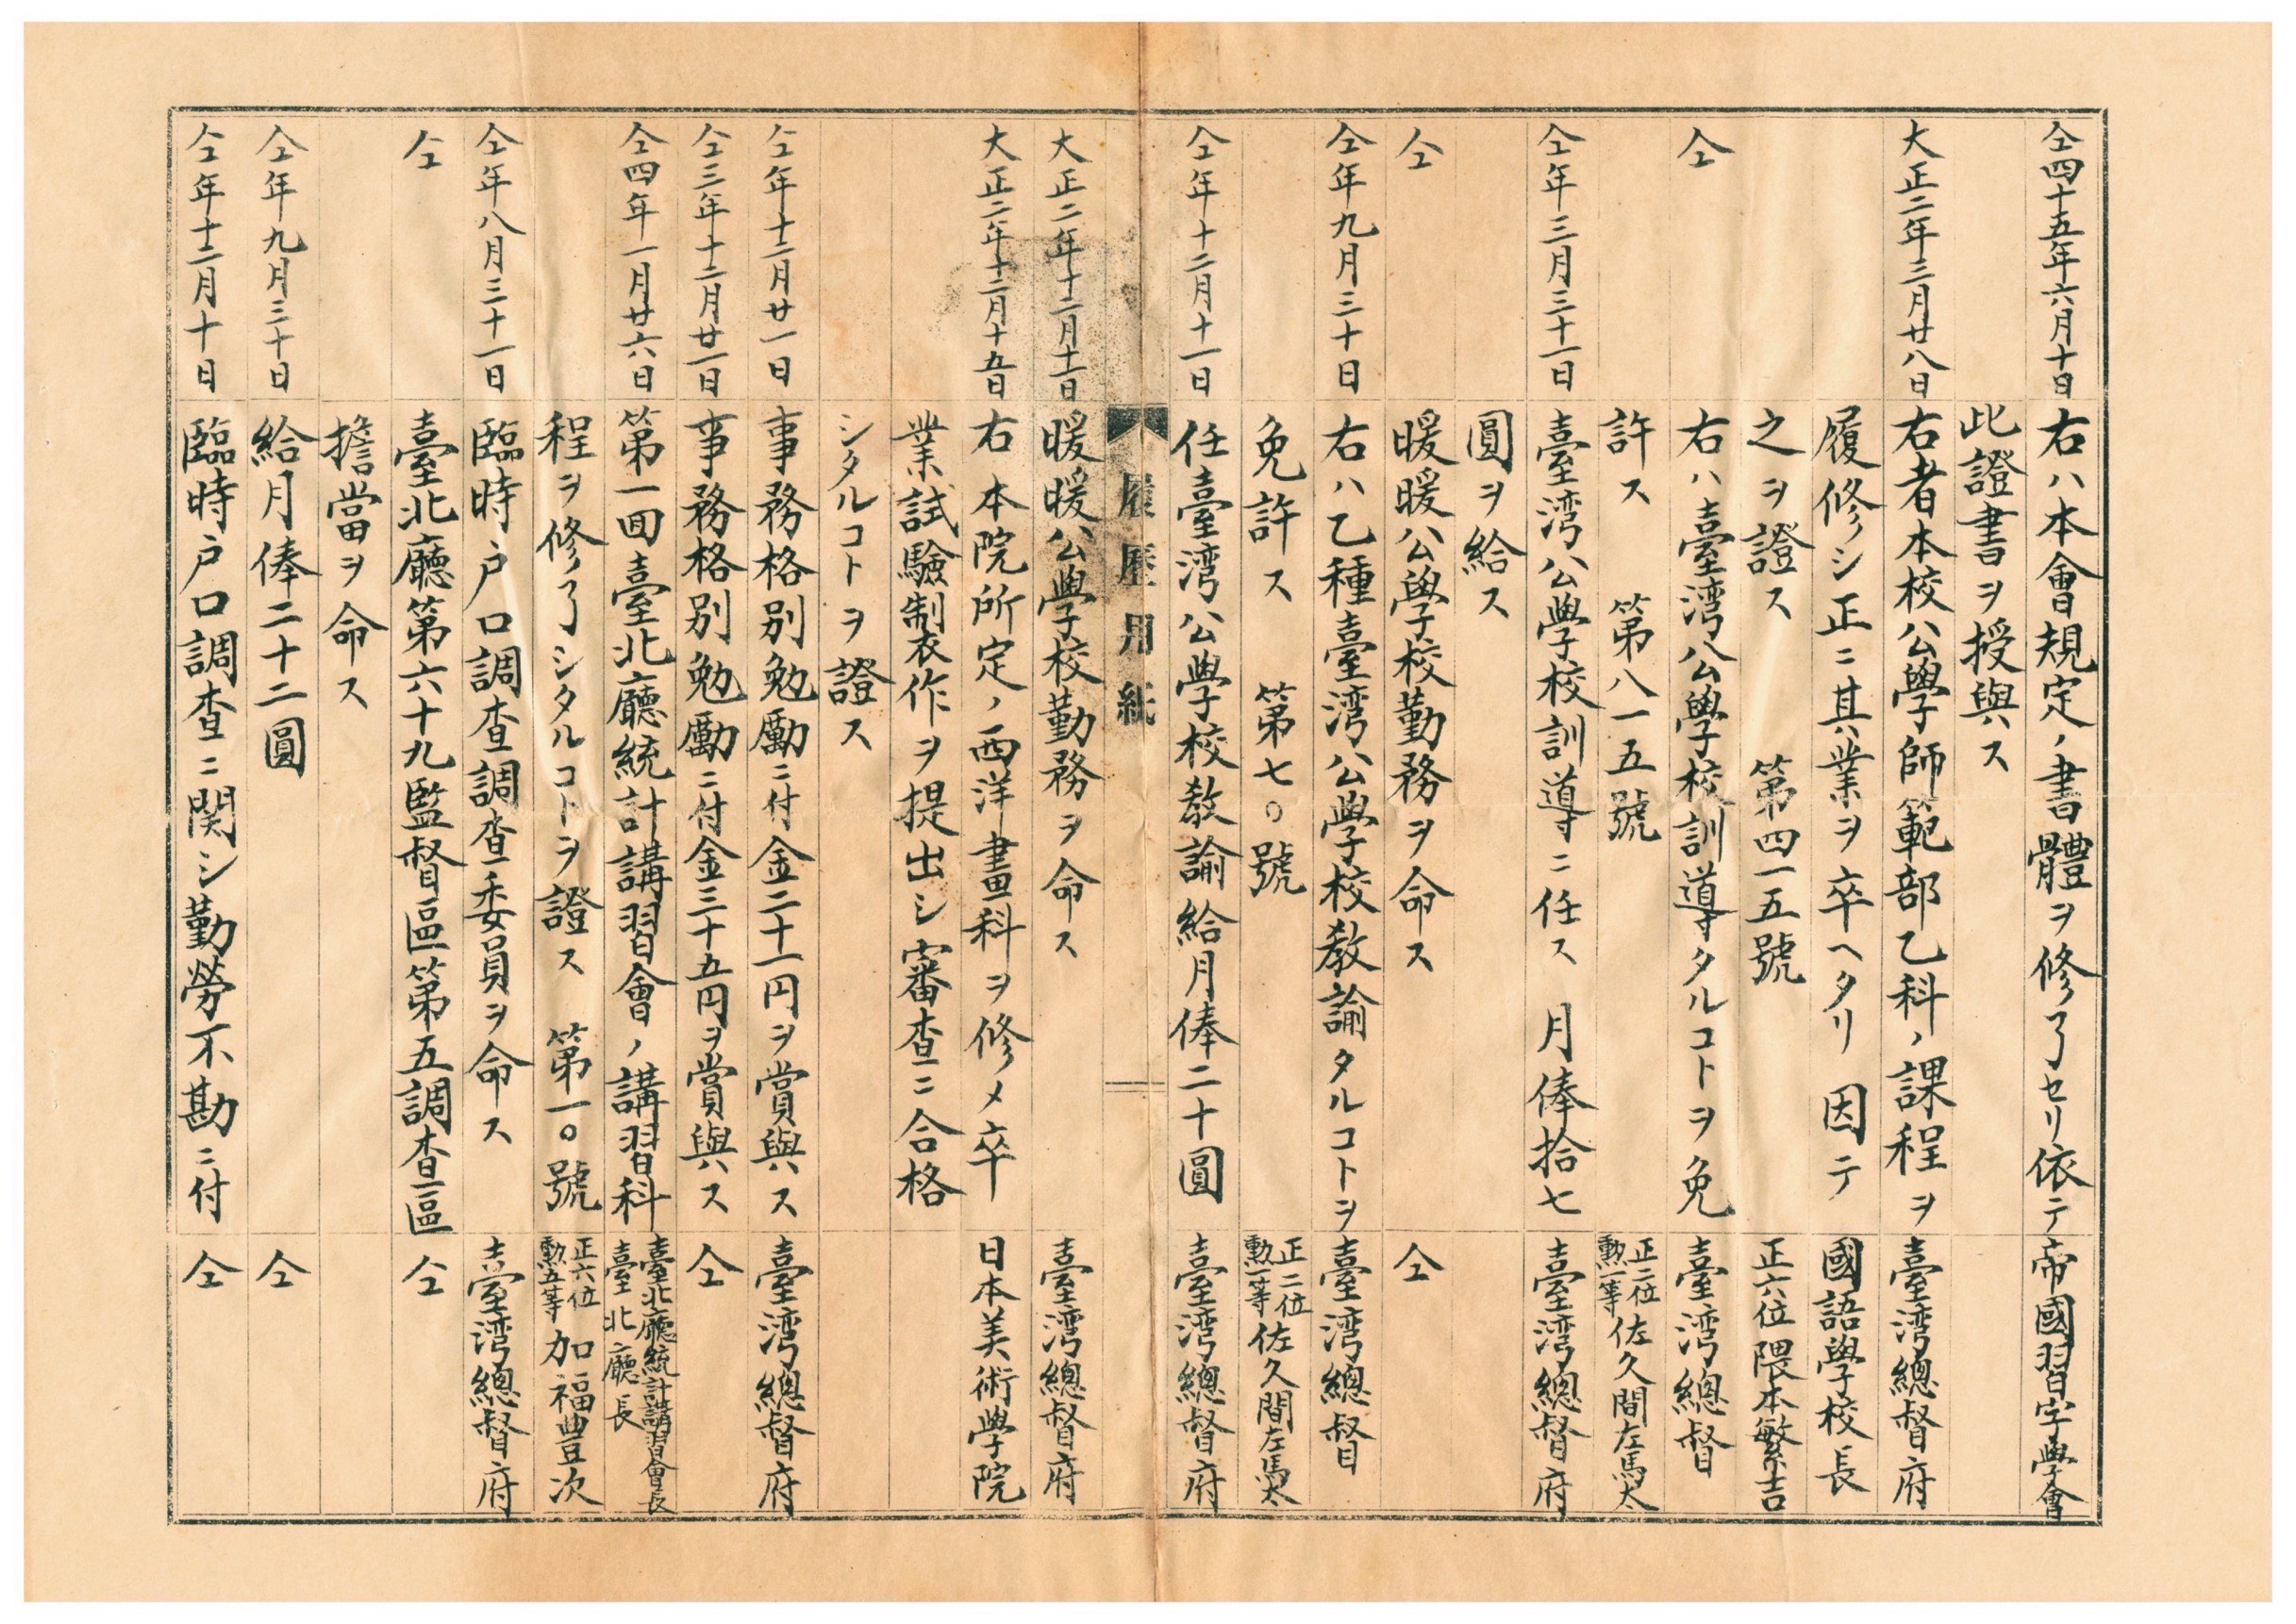 仝四十五年六月十日 右ハ本會規定ノ書體ヲ修了セリ依テ 帝國習字學會
此證書ヲ授與ス
大正二年三月廿八日 右者本校公學師範部乙科ノ課程ヲ 臺湾總督府
履修シ正ニ其業ヲ卒ヘタリ 因テ 國語學校長
之ヲ證ス 第四一五號 正六位 隈本繁吉
仝 右ハ臺湾公學校訓導タルコトヲ免 臺湾總督
許ス 第八一五號 正二位勳一等 佐久間左馬太
仝年三月三十一日 臺湾公學校訓導ニ任ス 月俸拾七 臺湾總督府
圓ヲ給ス
仝 暖暖公學校勤務ヲ命ス 仝
仝年九月三十日 右ハ乙種臺湾公學校教諭タルコトヲ 臺湾總督
免許ス 第七〇號 正二位勳一等 佐久間左馬太
仝年十二月十一日 任臺湾公學校教諭給月俸二十圓 臺湾總督府
履歷用紙
大正二年十二月十一日 暖暖公學校勤務ヲ命ス 臺湾總督府
大正二年十二月十五日 右本院所定ノ西洋畫科ヲ修メ卒 日本美術學院
業試驗制衣作ヲ提出シ審查ニ合格
シタルコトヲ證ス
仝年十二月廿一日 事務格別勉勵ニ付金二十一円ヲ賞與ス 臺湾總督府
仝三年十二月廿一日 事務格別勉勵ニ付金三十五円ヲ賞與ス 仝
仝四年一月廿六日 第一回臺北廳統計講習會ノ講習科 臺北廳統計講習會長 臺北廳長
程ヲ修了シタルコトヲ證ス 第一〇號 正六位勳五等 加福豊次
仝年八月三十一日 臨時户口調查調查委員ヲ命ス 臺湾總督府
仝 臺北廳第六十九監督區第五調查區 仝
擔當ヲ命ス
仝年九月三十日 給月俸二十二圓 仝
仝年十二月十日 臨時户口調查ニ関シ勤勞不勘ニ付 仝